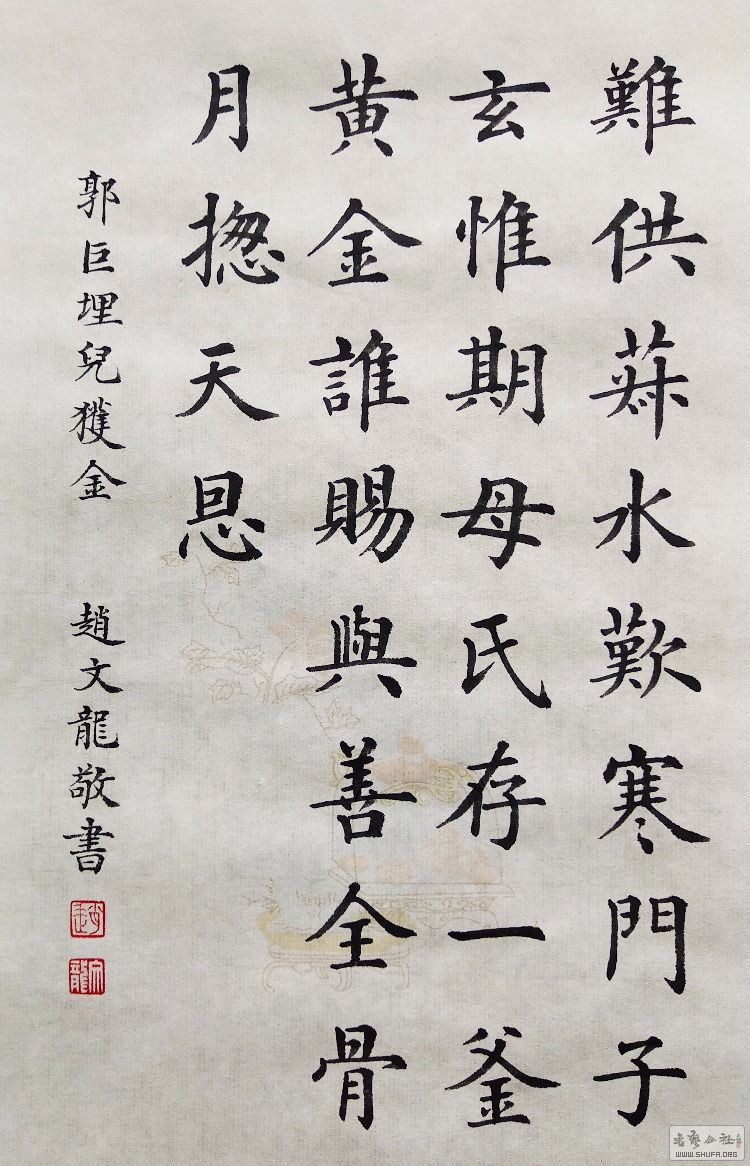 難供菽水歎寒門子
玄惟期母氏存一釜
黄金誰賜與善全骨
月揔天恩
郭巨埋兒獲金 趙文龍敬書
趙
文龍
书艺公社
WWW.SHUFA.ORG